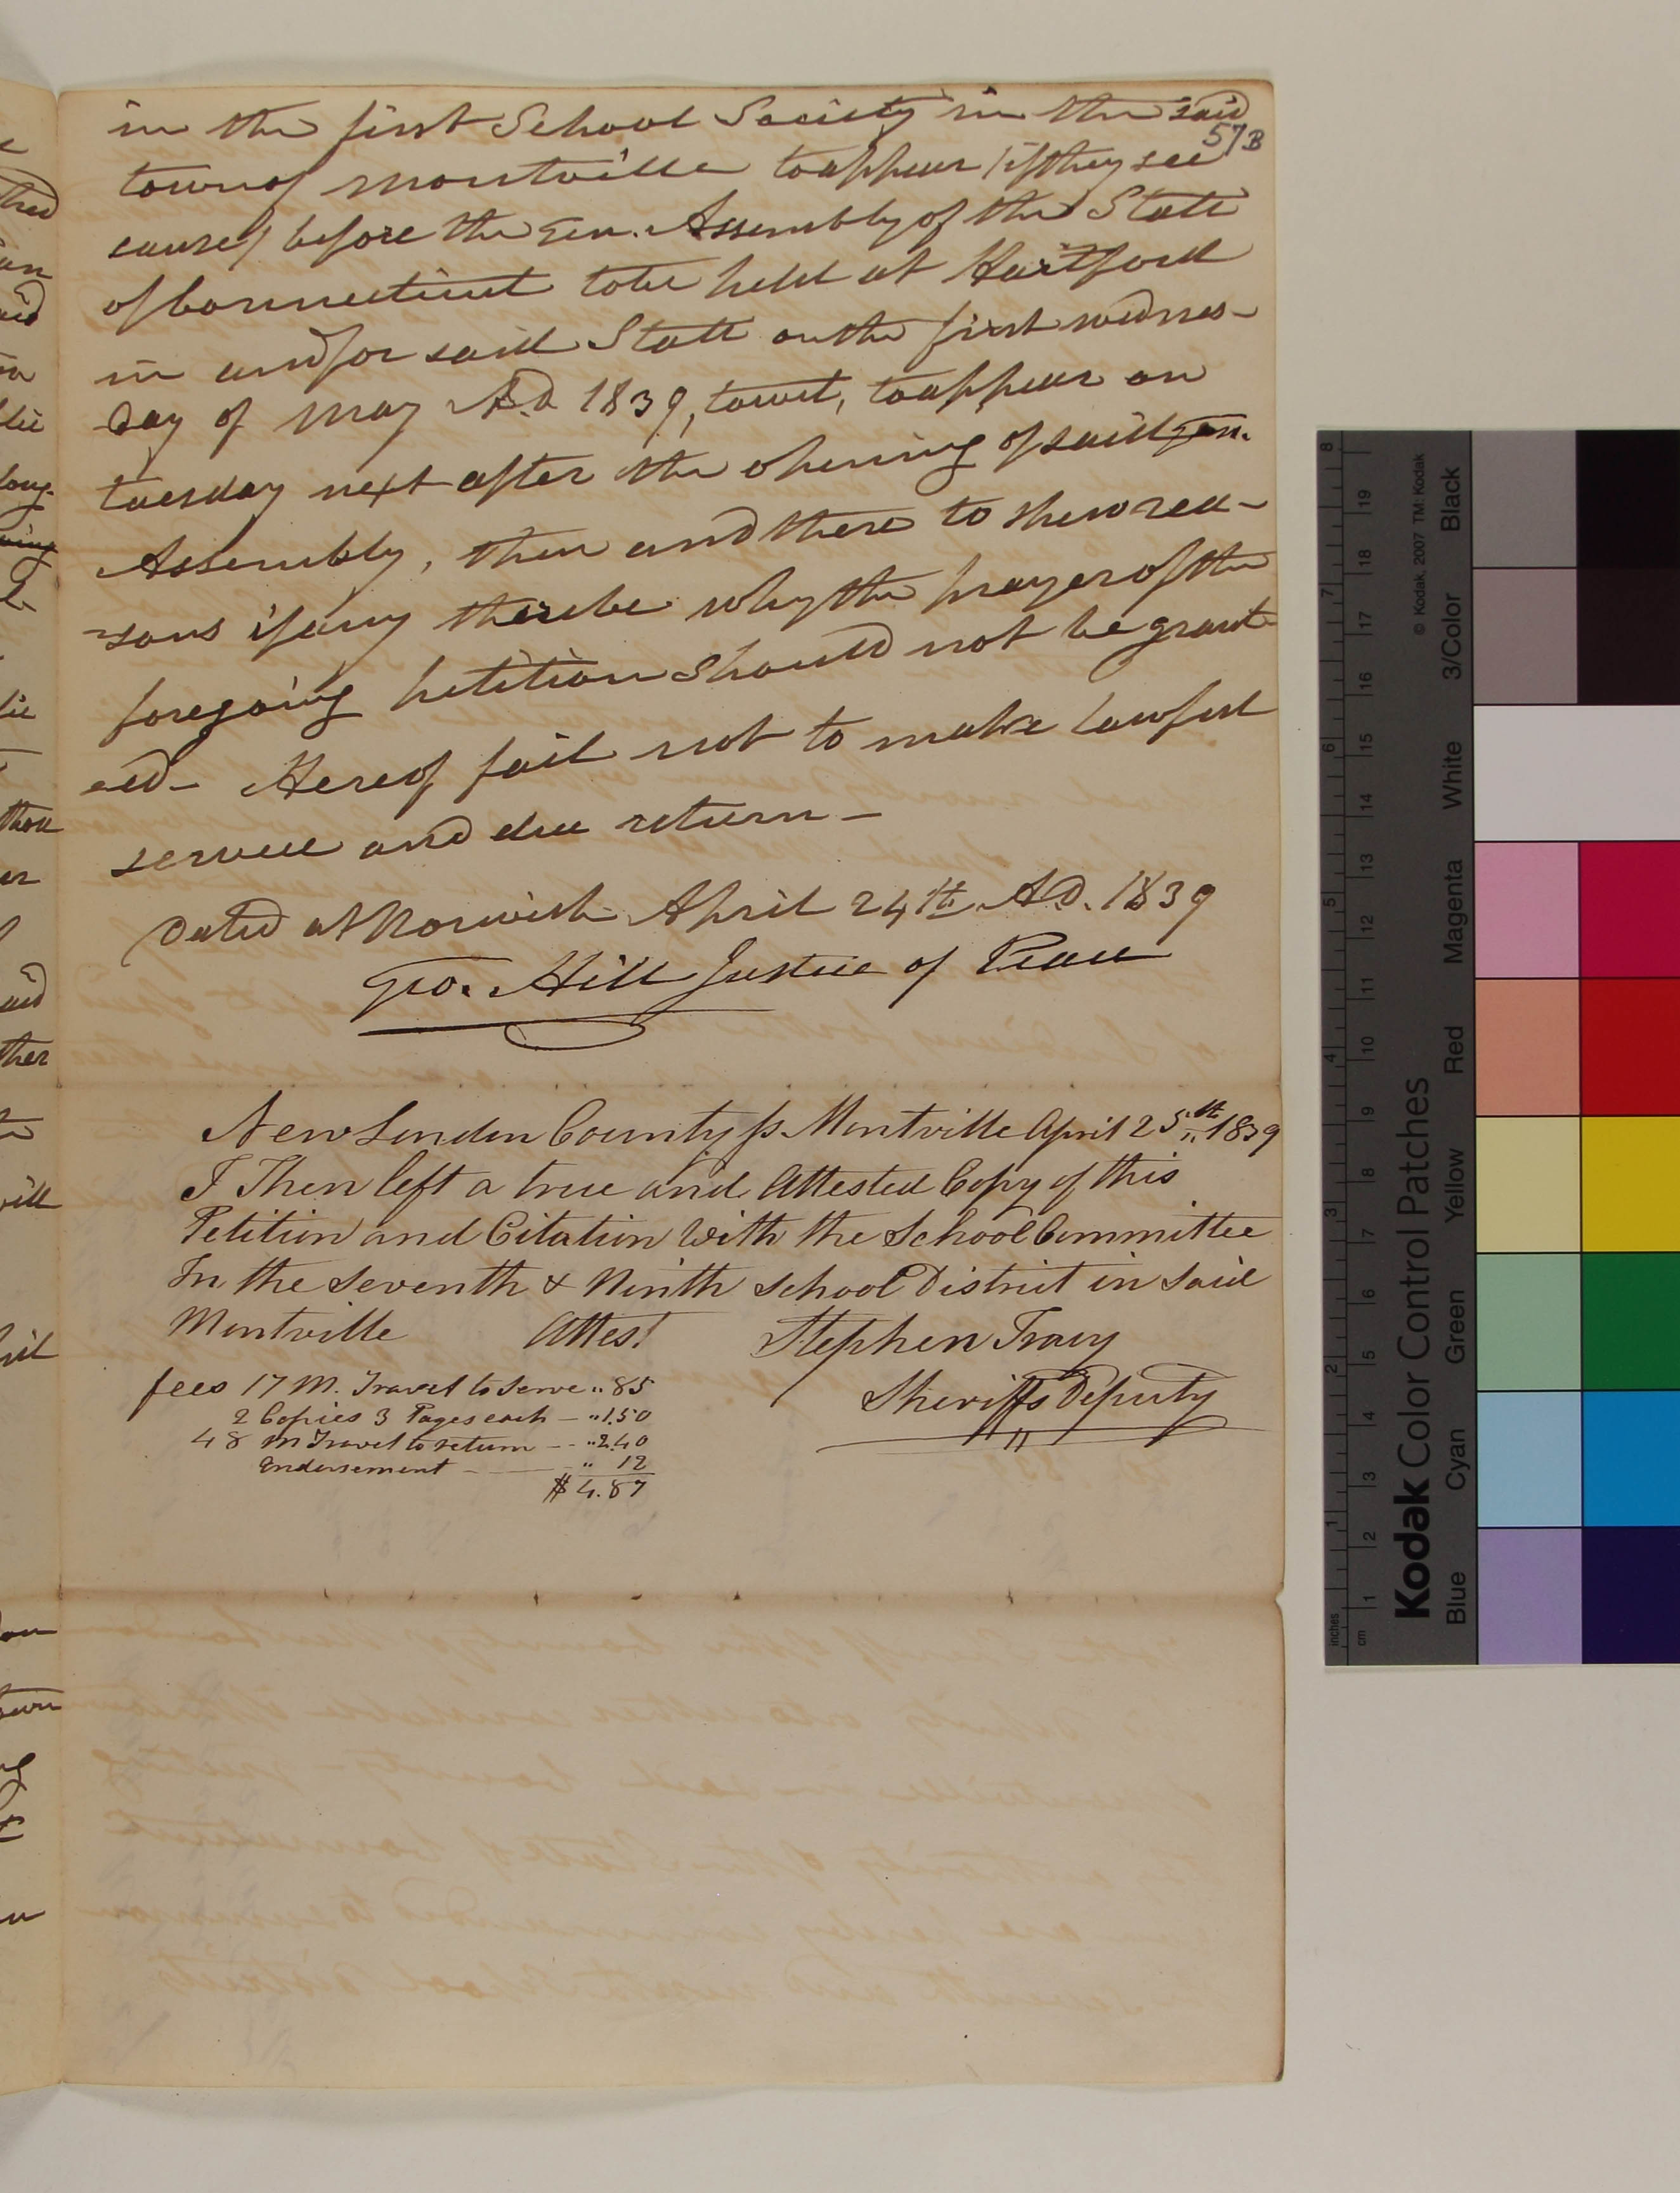 in the first School Society in the said
57B
town of Montville to appear (if they see
cause) before the Gen. Assembly of the State
of Connecticut to be held at Hartford
in and for said State on the first wednes-
day of May A.D. 1839, towit, to appear on
tuesday next after the opening of said Gen.
Assembly, then and there to shew rea-
sons if any there be why the prayer of the
foregoing petition should not be grant-
ed- Hereof fail not to make lawful
service and due return-
Dated at Norwich April 24th A.D. 1839
Geo. Hill Justice of Peace
New London County ss. Montville April 25th 1839
I Then left a true and Attested Copy of this
Petition and Citation With the School Committee
In the Seventh & Ninth School District in Said
Montville Attest Stephen Tracy
Sheriffs Deputy
fees 17 M. Travel to Serve " 85
2 Copies 3 Pages each - " 1.50
48 M Travel to return - - " 2.40
Endorsement - " 12
$ 4.87
Kodak Color Control Patches
© Kodak, 2007 TM: Kodak
Blue Cyan Green Yellow Red Magenta White 3/Color Black
inches 1 2 3 4 5 6 7 8
cm 1 2 3 4 5 6 7 8 9 10 11 12 13 14 15 16 17 18 19